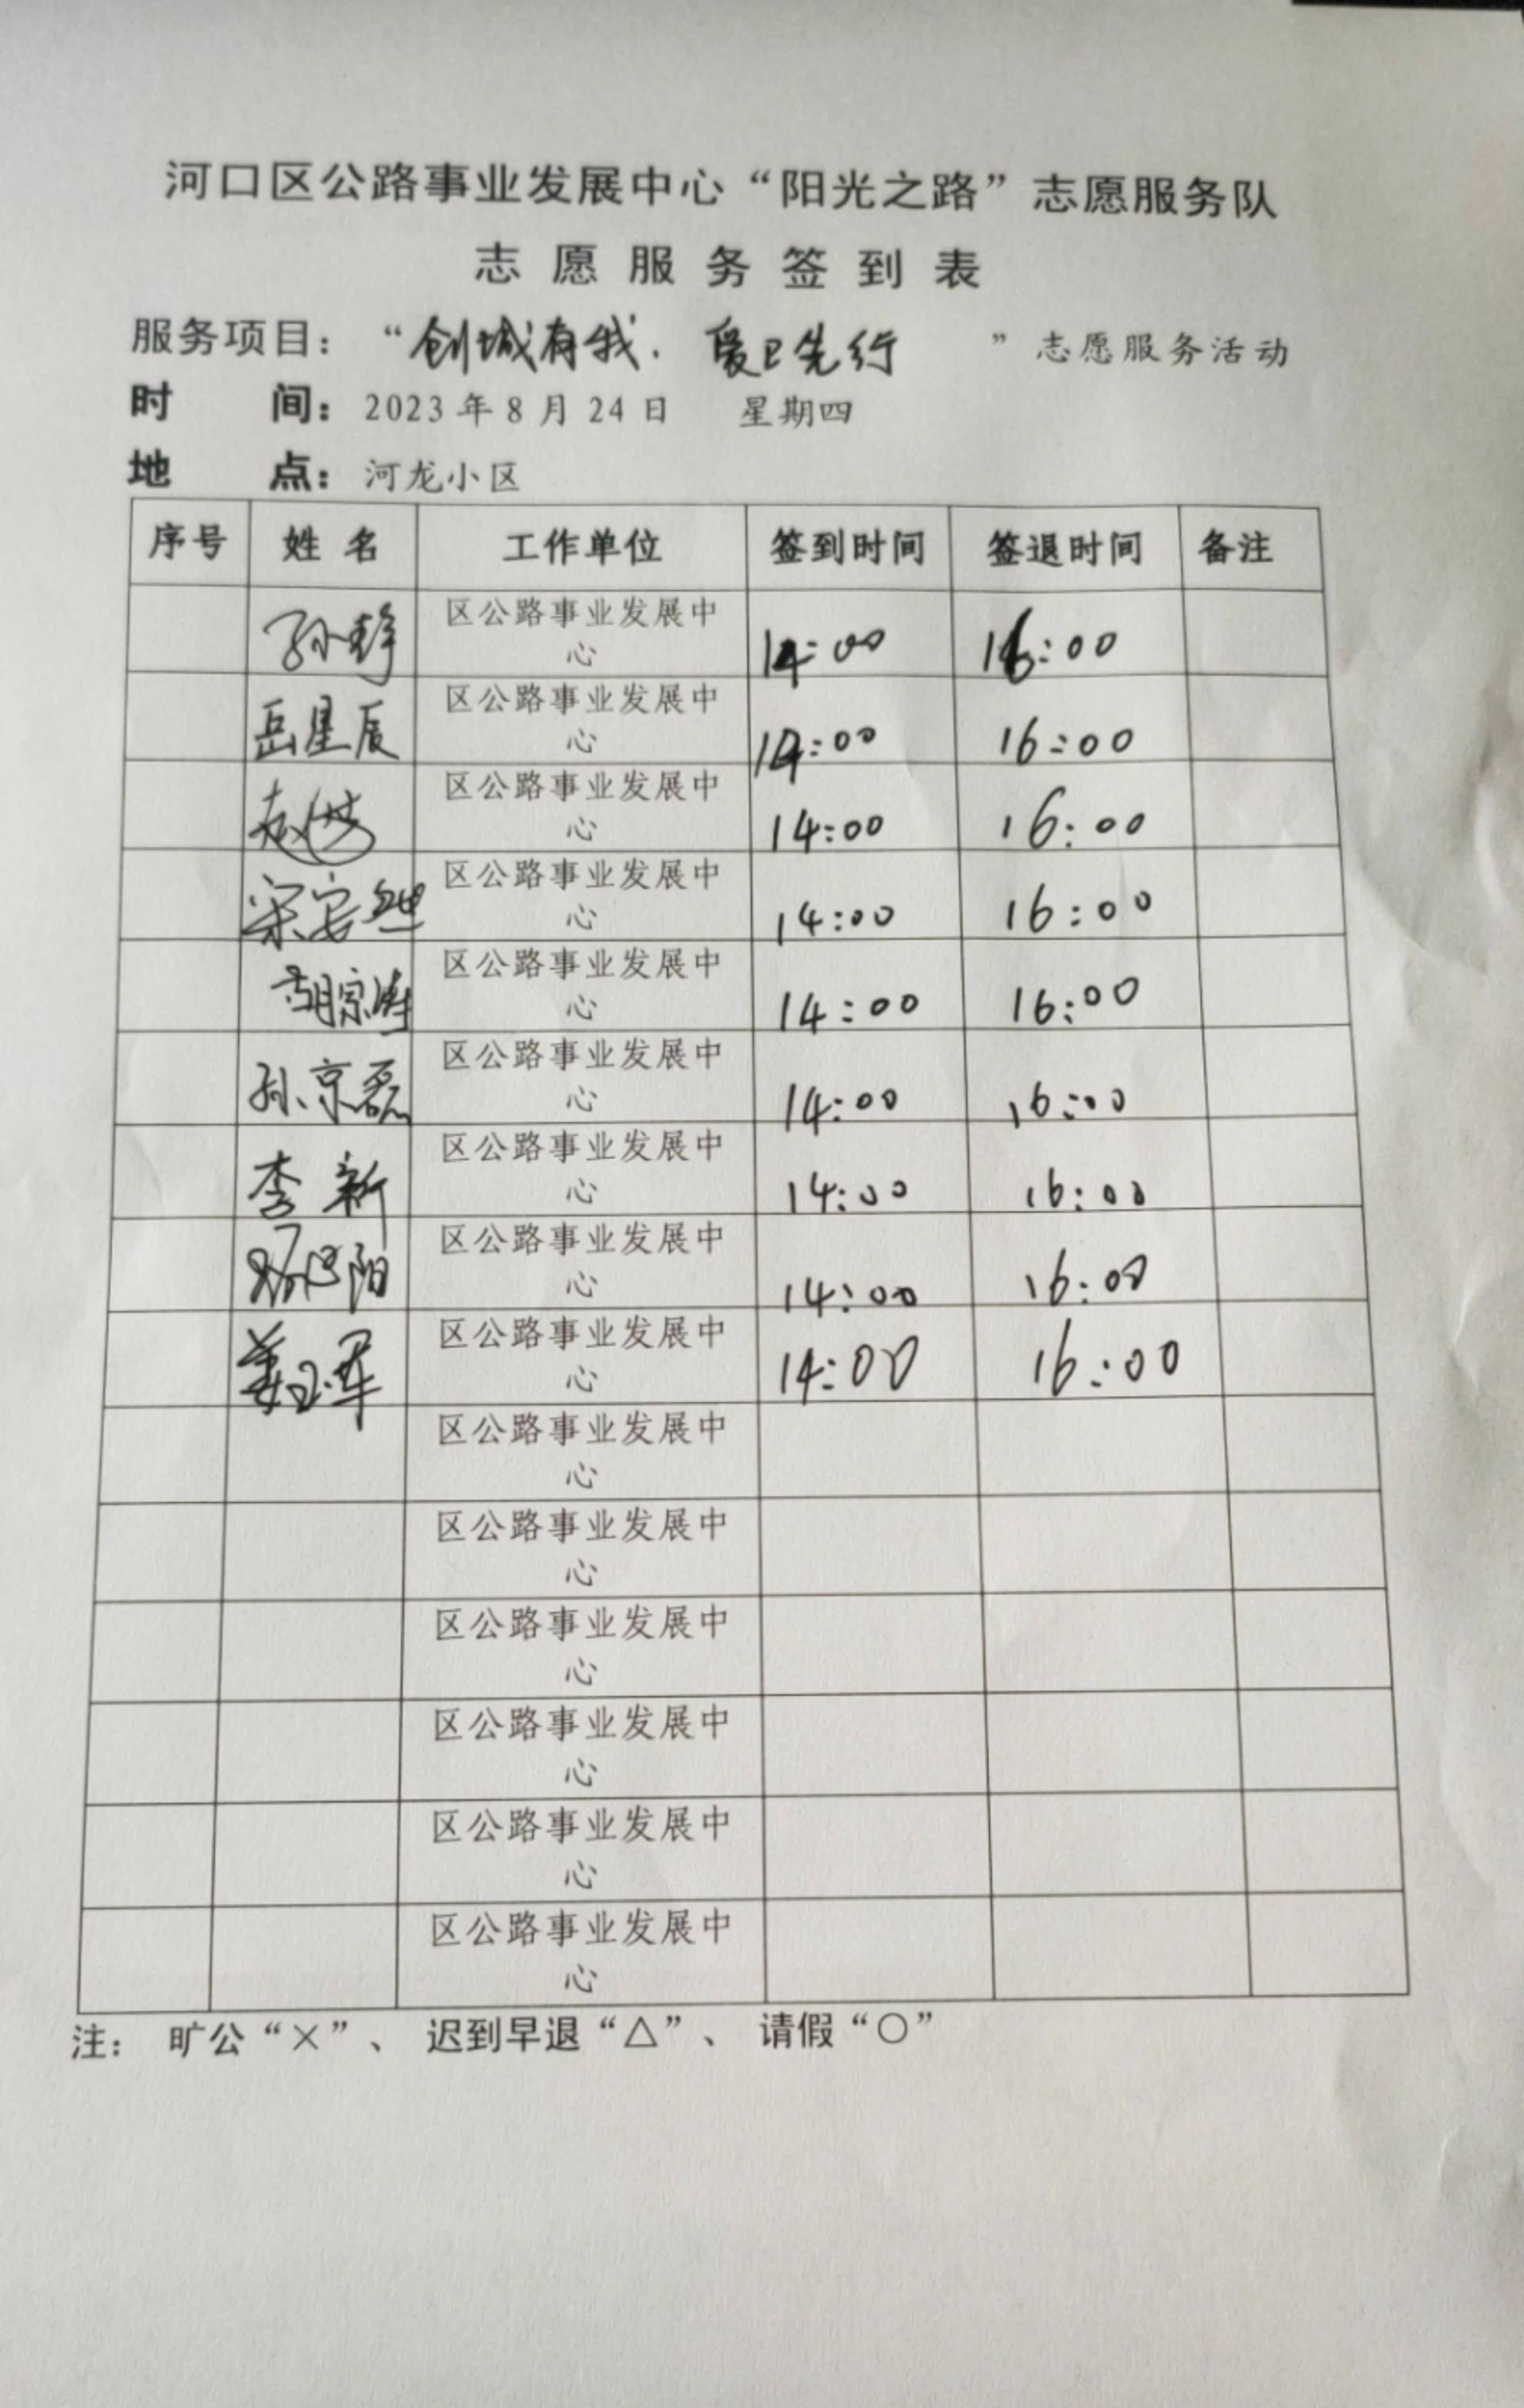 河口区公路事业发展中心“阳光之路”志愿服务队
志愿服务签到表
服务项目：“创城有我，爱卫先行”志愿服务活动
时间：2023年8月24日 星期四
地点：河龙小区
序号 姓名 工作单位 签到时间 签退时间 备注
孙静 区公路事业发展中心 14:00 16:00
岳星辰 区公路事业发展中心 14:00 16:00
区公路事业发展中心 14:00 16:00
区公路事业发展中心 14:00 16:00
胡宗涛 区公路事业发展中心 14:00 16:00
孙京磊 区公路事业发展中心 14:00 16:00
李新 区公路事业发展中心 14:00 16:00
区公路事业发展中心 14:00 16:00
姜玉军 区公路事业发展中心 14:00 16:00
区公路事业发展中心
区公路事业发展中心
区公路事业发展中心
区公路事业发展中心
区公路事业发展中心
区公路事业发展中心
注：旷公“×”、迟到早退“△”、请假“○”